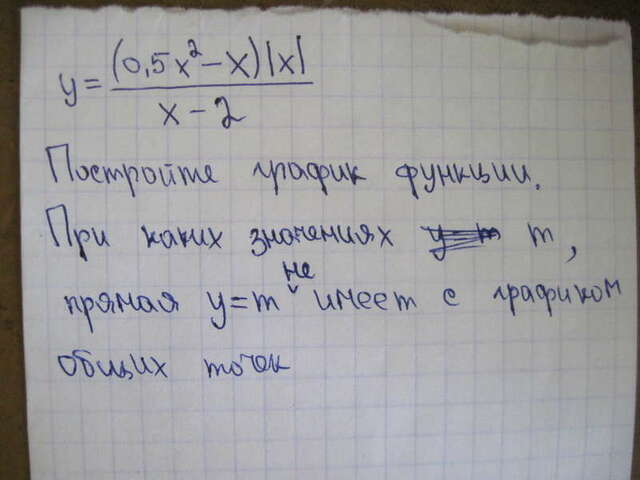 y = (0,5x² - x)|x| / x - 2
Постройте график функции.
При каких значениях m,
прямая y=m не имеет с графиком
общих точек